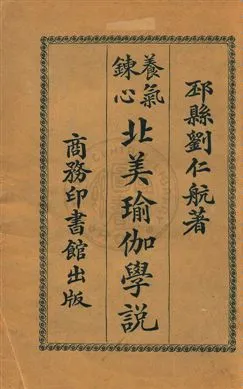 邳縣劉仁航著
養氣
鍊心
北美瑜伽學説
商務印書館出版